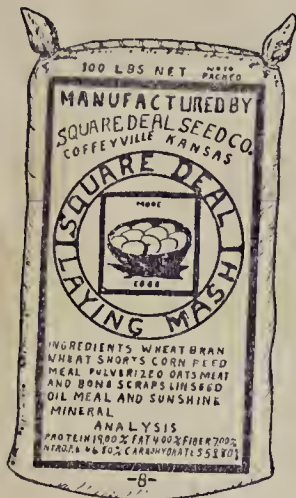 100 LBS NET WHEN PACKED
MANUFACTURED BY
SQUARE DEAL SEED CO.
COFFEYVILLE KANSAS
SQUARE DEAL
MORE
EGGS
LAYING MASH
INGREDIENTS WHEAT BRAN
WHEAT SHORTS CORN FEED
MEAL PULVERIZED OATS MEAT
AND BONE SCRAPS LINSEED
OIL MEAL AND SUNSHINE
MINERAL
ANALYSIS
PROTEIN 19.00% FAT 4.00% FIBER 7.00%
CARBOHYDRATES
-8-